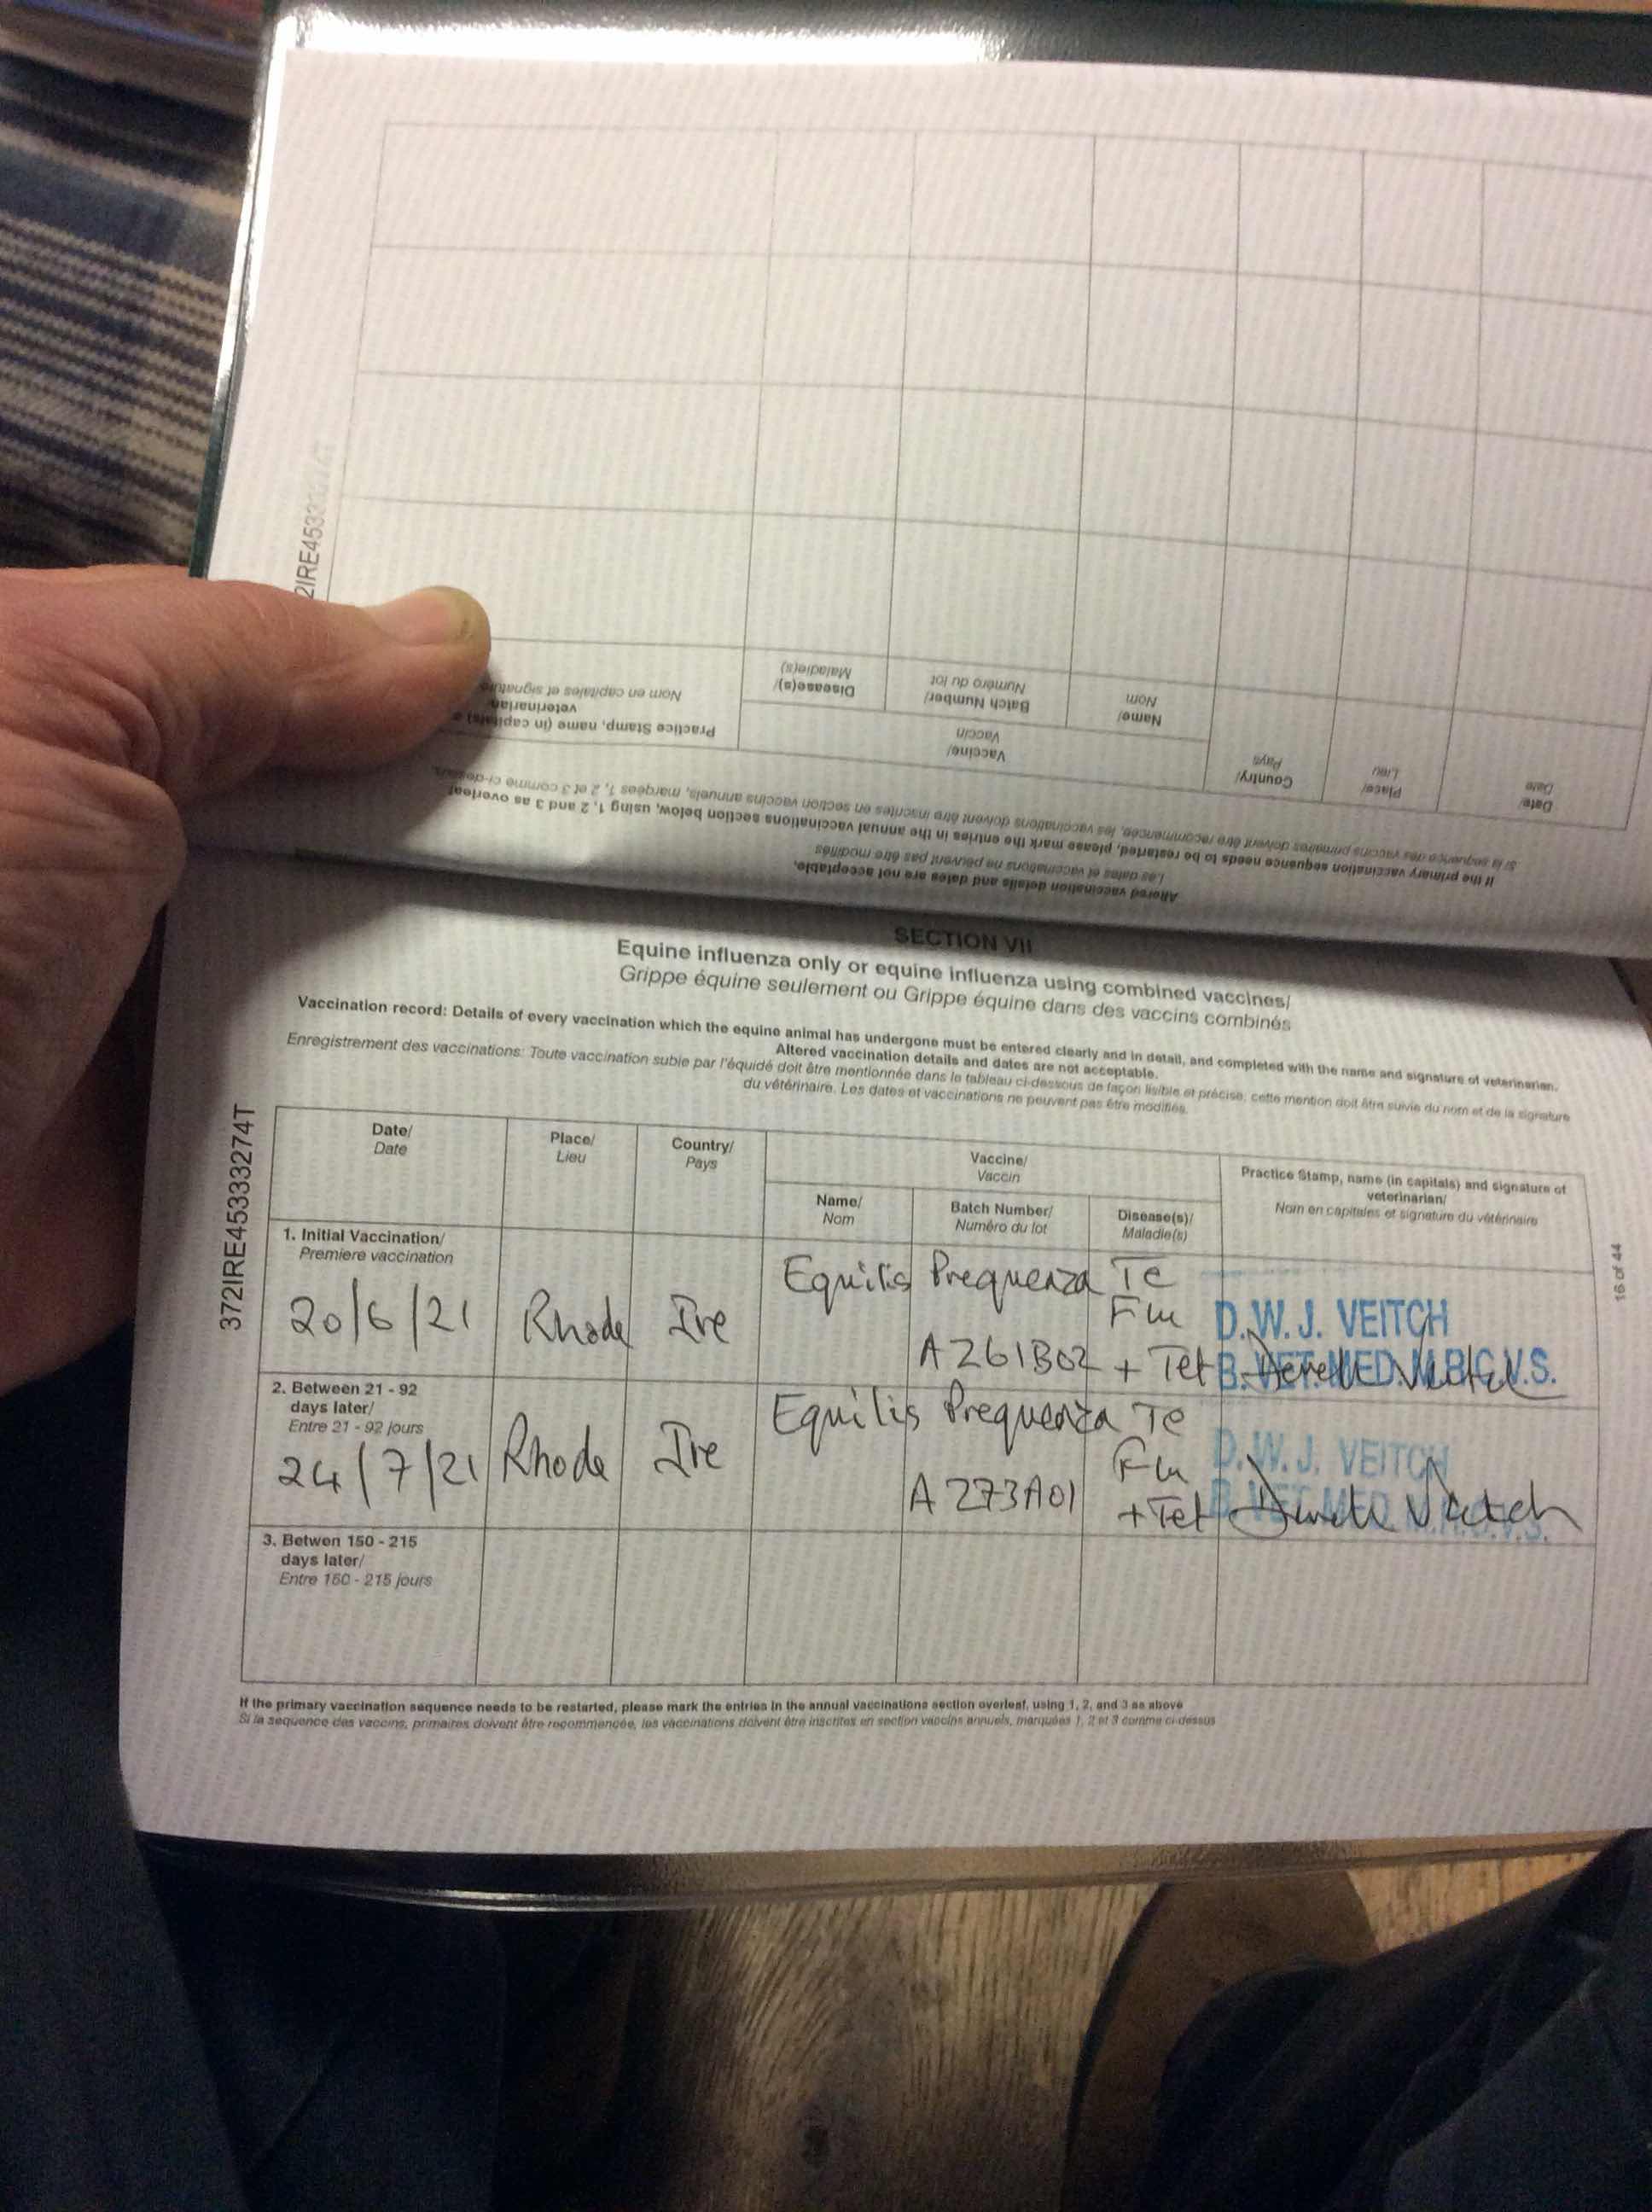 2IRE453
Altered vaccination details and dates are not acceptable.
Les dates et vaccinations ne peuvent pas être modifiés
If the primary vaccination sequence needs to be restarted, please mark the entries in the annual vaccinations section below, using 1, 2 and 3 as overleaf
Si la sequence des vaccins primaires doivent être recommencée, les vaccinations doivent être inscrites en section vaccins annuels, marqées 1, 2 et 3 comme ci-dessus
Date/
Date
Place/
Lieu
Country/
Pays
Vaccine/
Vaccin
Name/
Nom
Batch Number/
Numéro du lot
Disease(s)/
Maladie(s)
Practice Stamp, name (in capitals)
veterinarian/
Nom en capitales et signature
SECTION VII
Equine influenza only or equine influenza using combined vaccines/
Grippe équine seulement ou Grippe équine dans des vaccins combinés
Vaccination record: Details of every vaccination which the equine animal has undergone must be entered clearly and in detail, and completed with the name and signature of veterinarian.
Altered vaccination details and dates are not acceptable.
Enregistrement des vaccinations: Toute vaccination subie par l'équidé doit être mentionnée dans le tableau ci-dessous de façon lisible et précise, cette mention doit être suivie du nom et de la signature
du vétérinaire. Les dates et vaccinations ne peuvent pas être modifiés.
372IRE45333274T
Date/
Date
Place/
Lieu
Country/
Pays
Vaccine/
Vaccin
Name/
Nom
Batch Number/
Numéro du lot
Disease(s)/
Maladie(s)
Practice Stamp, name (in capitals) and signature of
veterinarian/
Nom en capitales et signature du vétérinaire
1. Initial Vaccination/
Premiere vaccination
20/6/21 Rhode Ire
Equilis Prequenza Te
A261B02
Flu
+ Tet
D.W.J. VEITCH
B.VET.MED.M.R.C.V.S.
2. Between 21 - 92
days later/
Entre 21 - 92 jours
24/7/21 Rhode Ire
Equilis Prequenza Te
A273A01
Flu
+Tet
D.W.J. VEITCH
B.VET.MED.M.R.C.V.S.
3. Betwen 150 - 215
days later/
Entre 150 - 215 jours
If the primary vaccination sequence needs to be restarted, please mark the entries in the annual vaccinations section overleaf, using 1, 2, and 3 as above
Si la sequence des vaccins, primaires doivent être recommencée, les vaccinations doivent être inscrites en section vaccins annuels, marquées 1, 2 et 3 comme ci-dessus
16 of 44